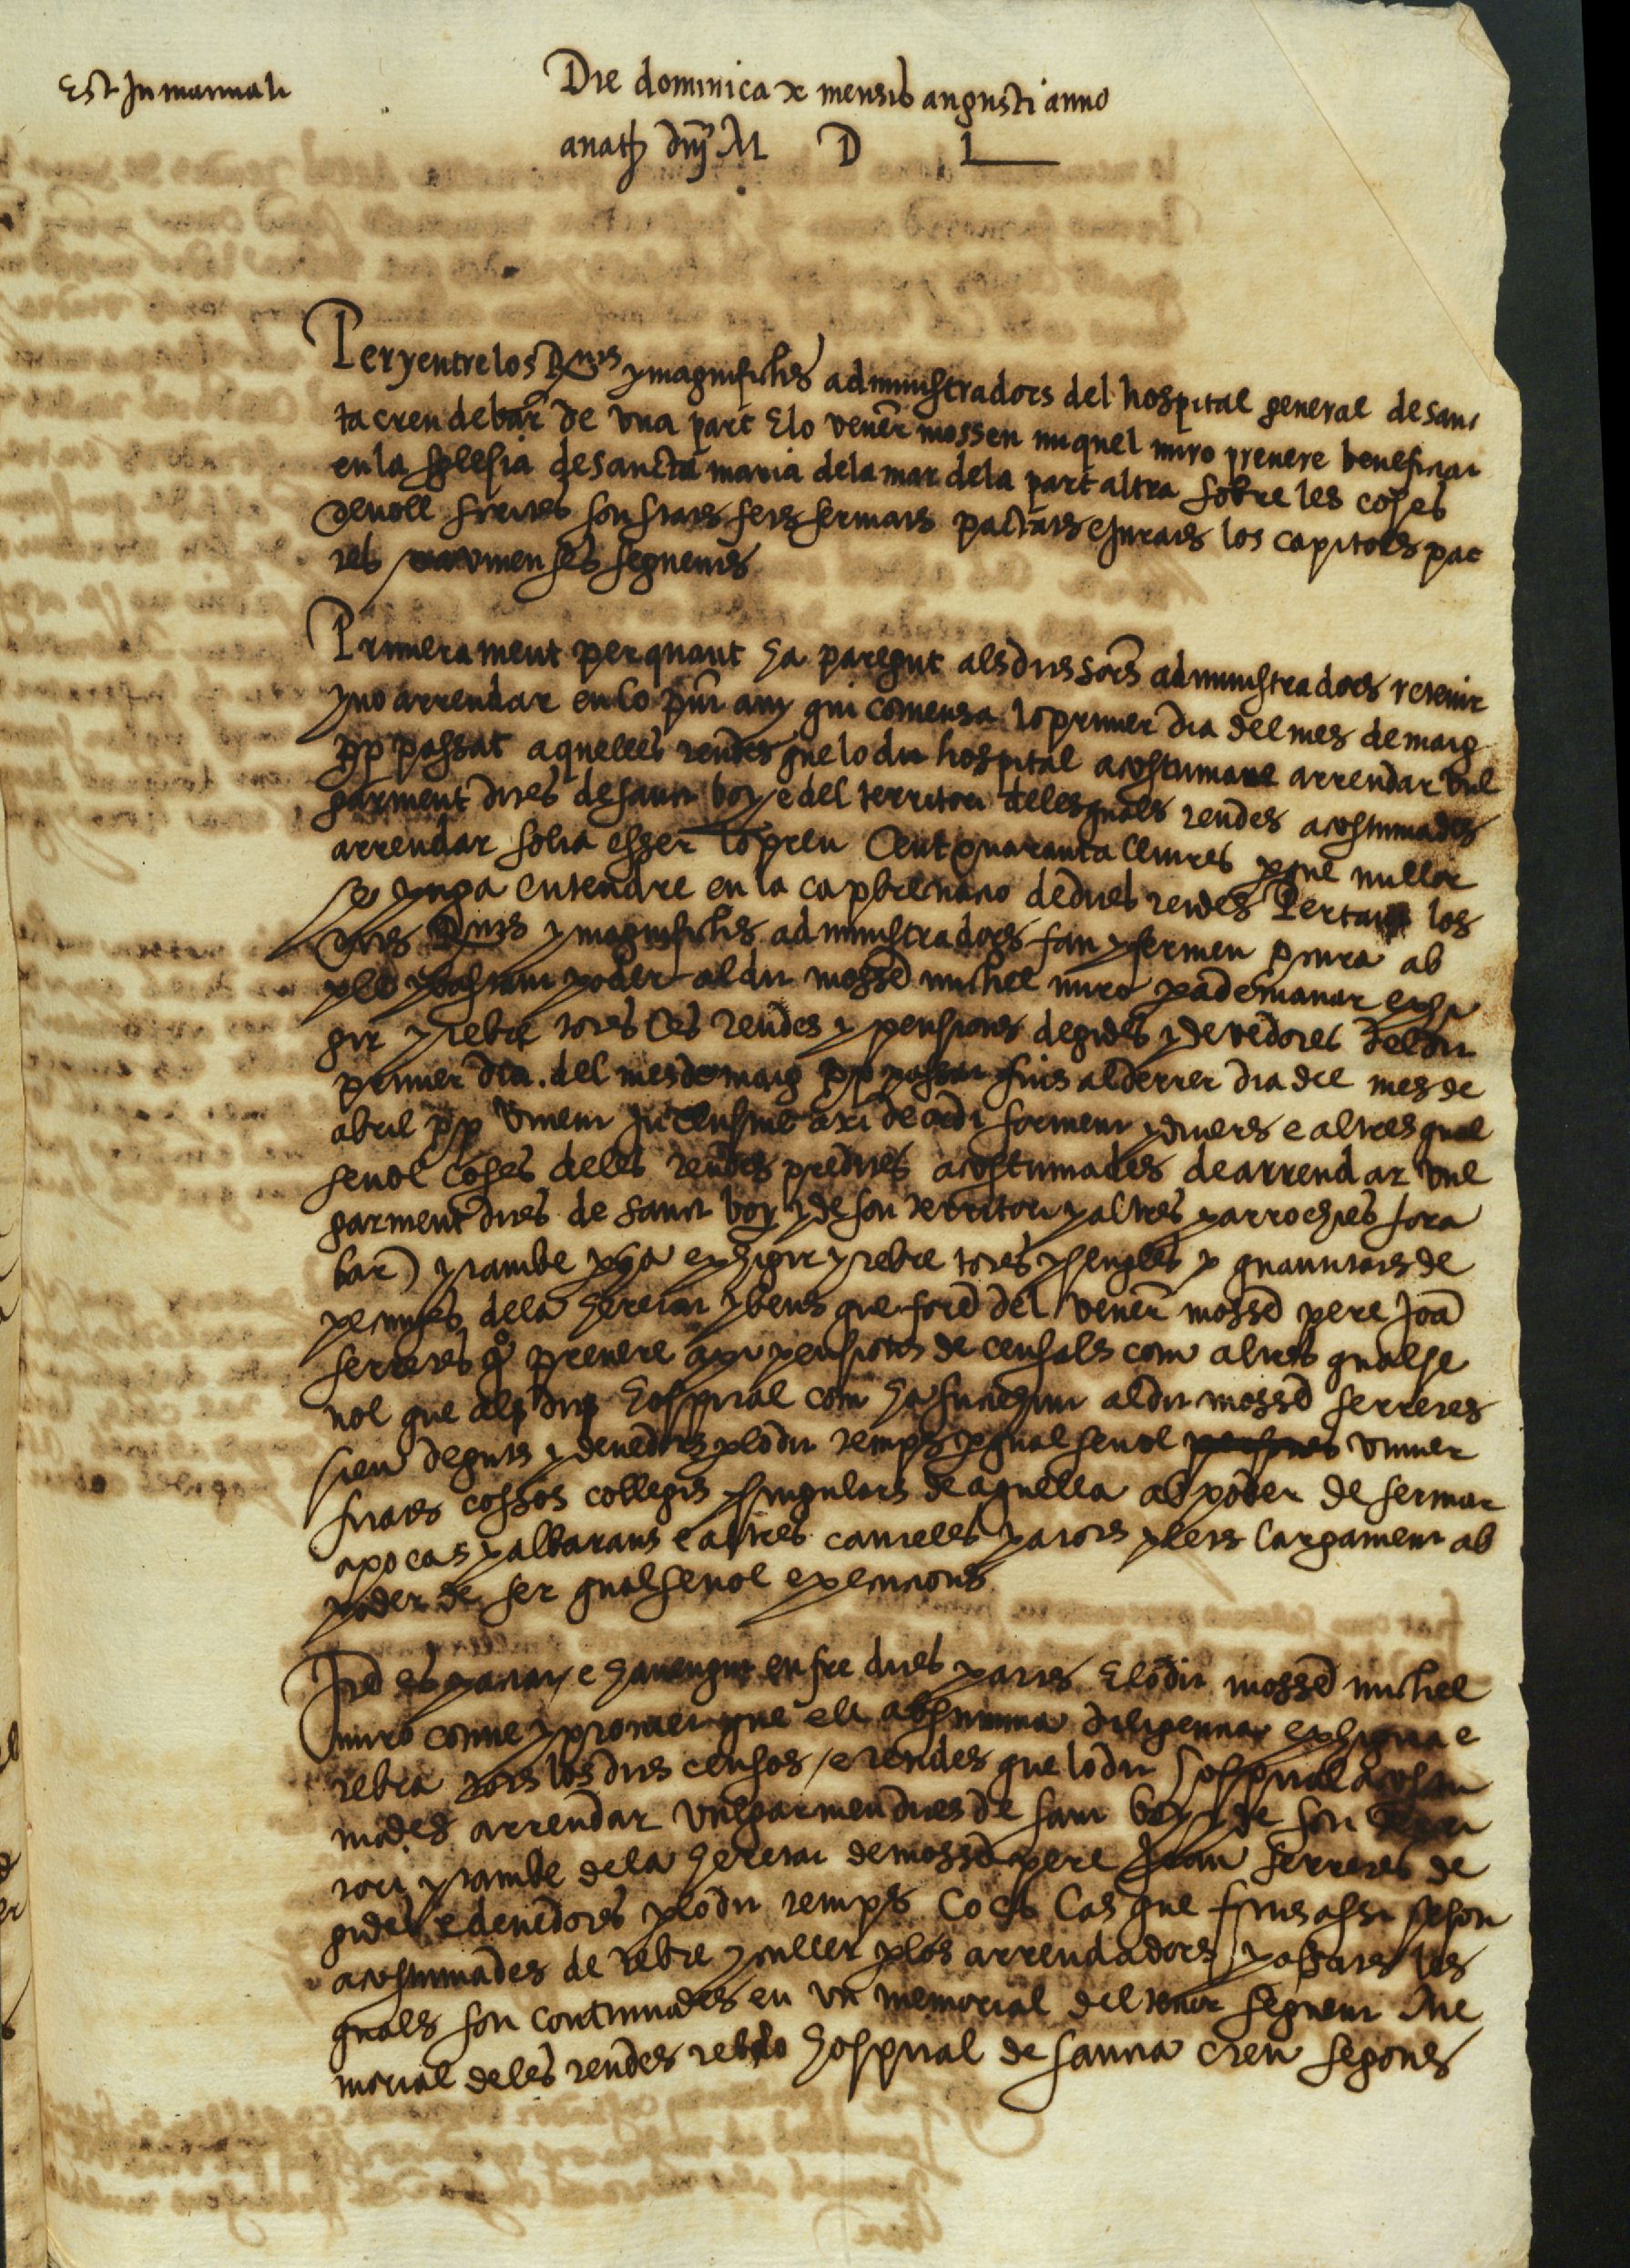 Est In manuali
Die dominica x mensis augusti anno
a natt dnj M D L
Per y entre los R.nts y magnifichs administradors del hospital general de sanc
ta creu de bar de una part E lo vener mossen miquel miro prevere beneficiat
en la Iglesia de sancta maria dela mar dela part altra sobre les coses
devall scrites son stats fets fermats pactats e jurats los capitols pac
tes avinenses seguents
Primerament per quant ha paregut als dits sors administradors retenir
y no arrendar en lo pnt any qui comensa lo primer dia del mes de maig
pp passat aquelles rendes que lo dit hospital acostumave arrendar vul
garment dites de sanct boy e del territori deles quals rendes acostumades
arrendar solia esser lo preu Cent quaranta lliures y que millor
se puga entendre en la capbrevatio de dites rendes Pertant los
dits R.nts y magnifichs administradors fan y fermen p.cura ab
ple y bastant poder al dit mosse michel miro p a demanar exhi
gir y rebre totes les rendes y pensions degudes y devedores del dit
primer dia del mes de maig pp passat fins al derrer dia del mes de
abril pp vinent Inclusive axi de ordi forment y diners e altres qual
sevol coses deles rendes predites acostumades de arrendar vul
garment dites de sanct boy y de son territori y altres parrochies fora
bar) y tambe p a exhigir y rebre totes y sengles quantitats de
pecunies dela heretat y bens que foren del vener mosse pere Joa
ferreres q.o prevere axi pensions de censals com altres qualse
vol que al dit hospital com ha succehint al dit mosse ferreres
sien deguts y devedors p lo dit temps p qualsevol univer
sitats cossos collegis y singulars de aquella ab poder de fermar
apocas y albarans e altres cauteles y actes y lets largament ab
poder de fer qualsevol execucions
Ite es pactat e havengut entre dites parts E lo dit mosse michel
miro conve y promet que ell ab summa diligencia exhigira e
rebra tots los dits censos e rendes que lo dit hospital acostu
mades arrendar vulgarment dites de sant boy y de son terri
tori y tambe dela heretat de mosse pere Joan ferreres de
gudes e devedores p lo dit temps Co es las que fins assi se son
acostumades de rebre y cullir p los arrendadors passats les
quals son continuades en un memorial del tenor seguent Me
morial de les rendes reb lo hospital de sancta creu segons